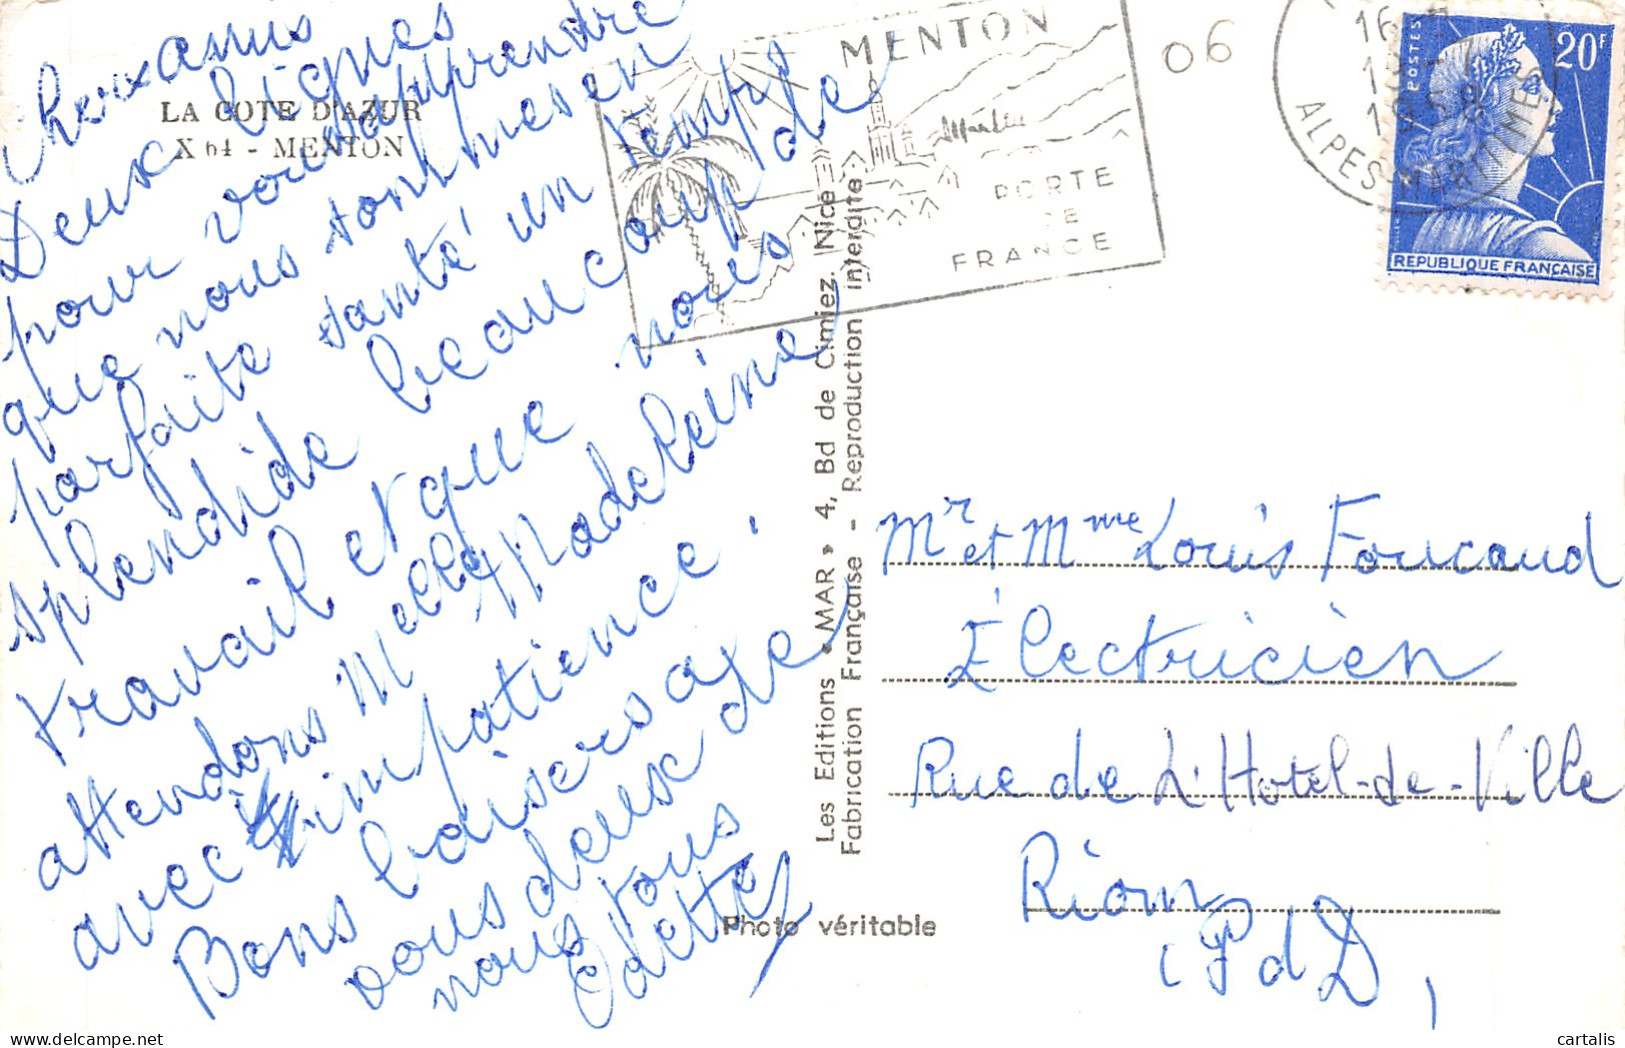 Chers amis
Deux lignes
pour vous apprendre
que nous sommes en
parfaite santé un temps
splendide beaucoup de
travail et que nous
attendons Melle Madeleine
avec impatience.
Bons baisers a
vous deux de
nous tous
Odette
LA COTE D'AZUR
X 64 - MENTON
MENTON
PORTE
DE
FRANCE
06
16
ALPES MARITIMES
POSTES
20F
REPUBLIQUE FRANÇAISE
Les Editions «MAR» 4, Bd de Cimiez. (Nice)
Fabrication Française - Reproduction interdite
Photo véritable
Mr et Mme Louis Foucaud
Électricien
Rue de L'Hotel-de-Ville
Riom
(P d D,
cartalis - delcampe.net